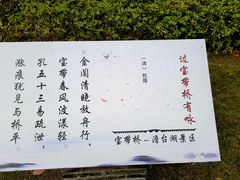 过宝带桥有咏
（清）乾隆
金阊清晓放舟行，
宝带春风波漾轻。
孔五十三易疏泄，
涨痕犹见与桥平。
宝带桥—澹台湖景区